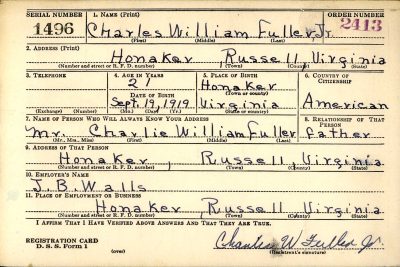 SERIAL NUMBER 1. NAME (Print) ORDER NUMBER
1496 Charles William Fuller, Jr. 2413
(First) (Middle) (Last)
2. ADDRESS (Print)
Honaker, Russell, Virginia
(Number and street or R. F. D. number) (Town) (County) (State)
3. TELEPHONE 4. AGE IN YEARS 5. PLACE OF BIRTH 6. COUNTRY OF CITIZENSHIP
21 Honaker
(Town or county)
DATE OF BIRTH
Sept. 19, 1919 Virginia American
(Exchange) (Number) (Mo.) (Day) (Yr.) (State or country)
7. NAME OF PERSON WHO WILL ALWAYS KNOW YOUR ADDRESS 8. RELATIONSHIP OF THAT PERSON
Mr. Charlie William Fuller father
(Mr., Mrs., Miss) (First) (Middle) (Last)
9. ADDRESS OF THAT PERSON
Honaker, Russell, Virginia
(Number and street or R. F. D. number) (Town) (County) (State)
10. EMPLOYER'S NAME
J. B. Walls
11. PLACE OF EMPLOYMENT OR BUSINESS
Honaker, Russell Virginia
(Number and street or R. F. D. number) (Town) (County) (State)
I AFFIRM THAT I HAVE VERIFIED ABOVE ANSWERS AND THAT THEY ARE TRUE.
REGISTRATION CARD
D. S. S. Form 1 (over) Charles W Fuller Jr.
(Registrant's signature)